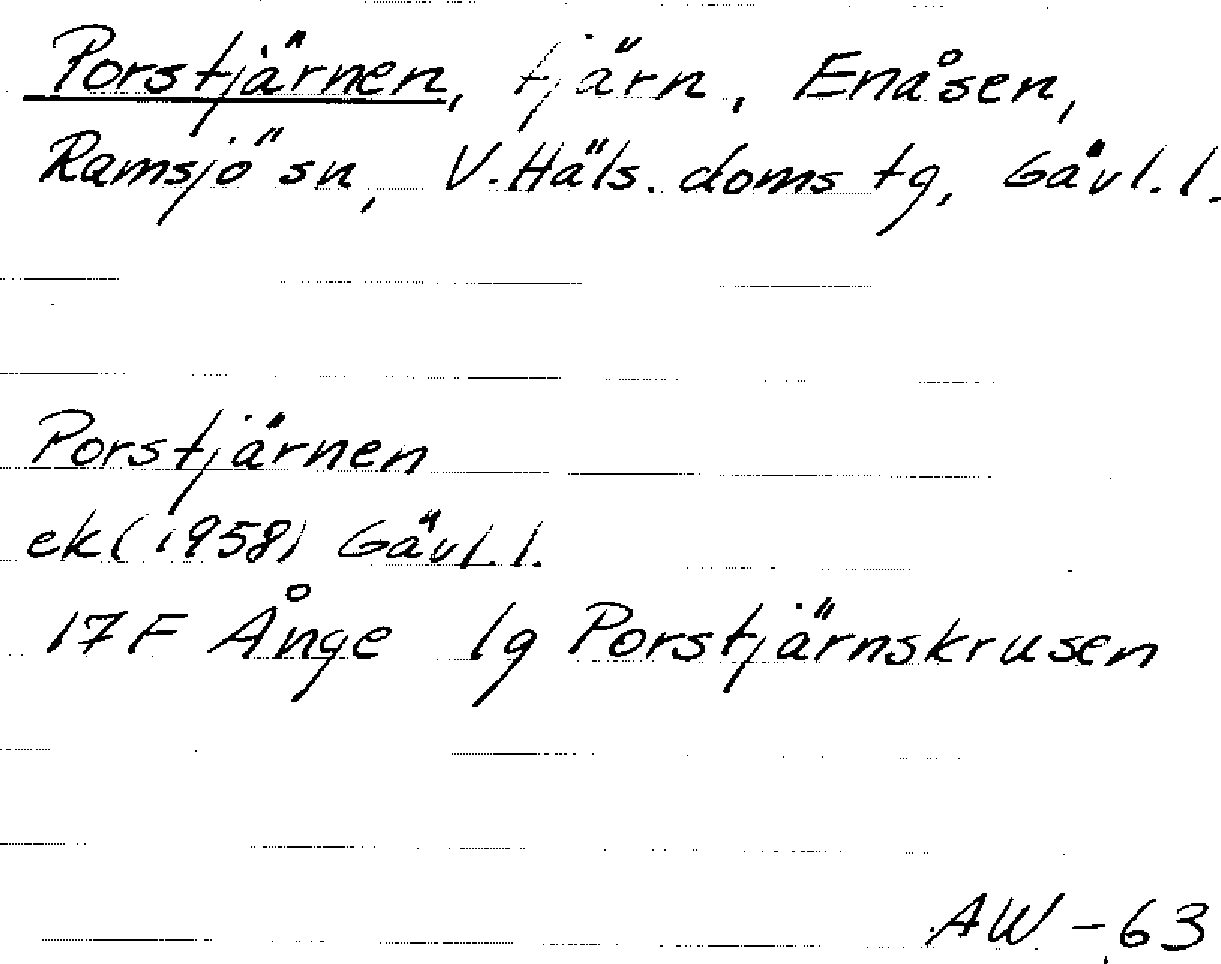 Porstjärnen, tjärn, Enåsen,
Ramsjö sn, V. Häls. doms tg, Gävl. l.
Porstjärnen
ek (1958) Gävl. l.
17F Ånge lg Porstjärnskrusen
AW - 63